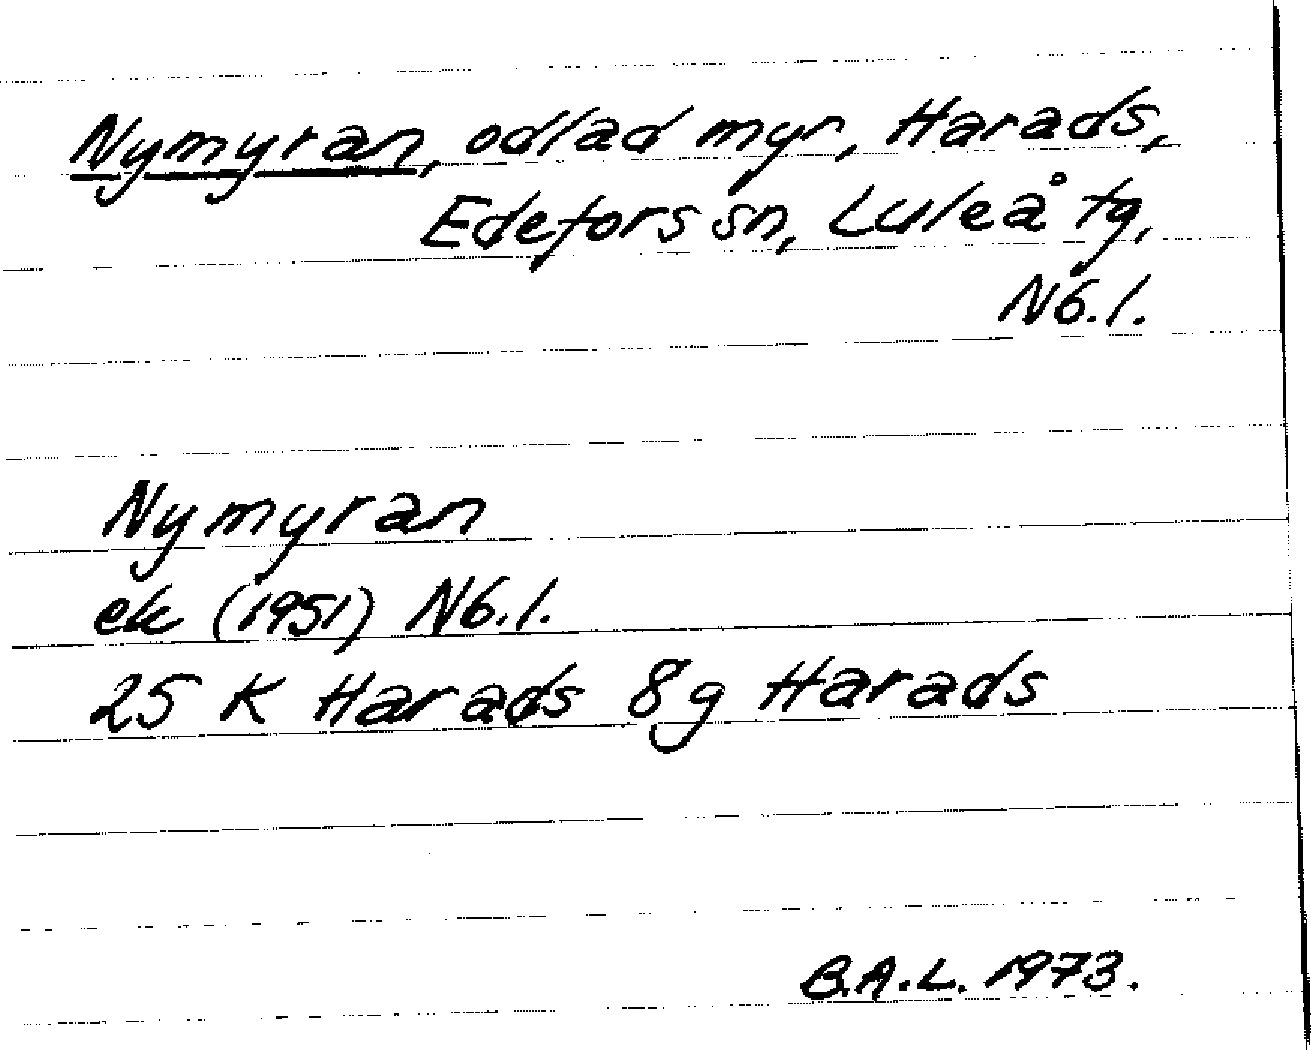 Nymyran, odlad myr, Harads,
Edefors sn, Luleå tg,
Nb.l.
Nymyran
ek (1951) Nb.l.
25 K Harads 8g Harads
B.A.L. 1973.